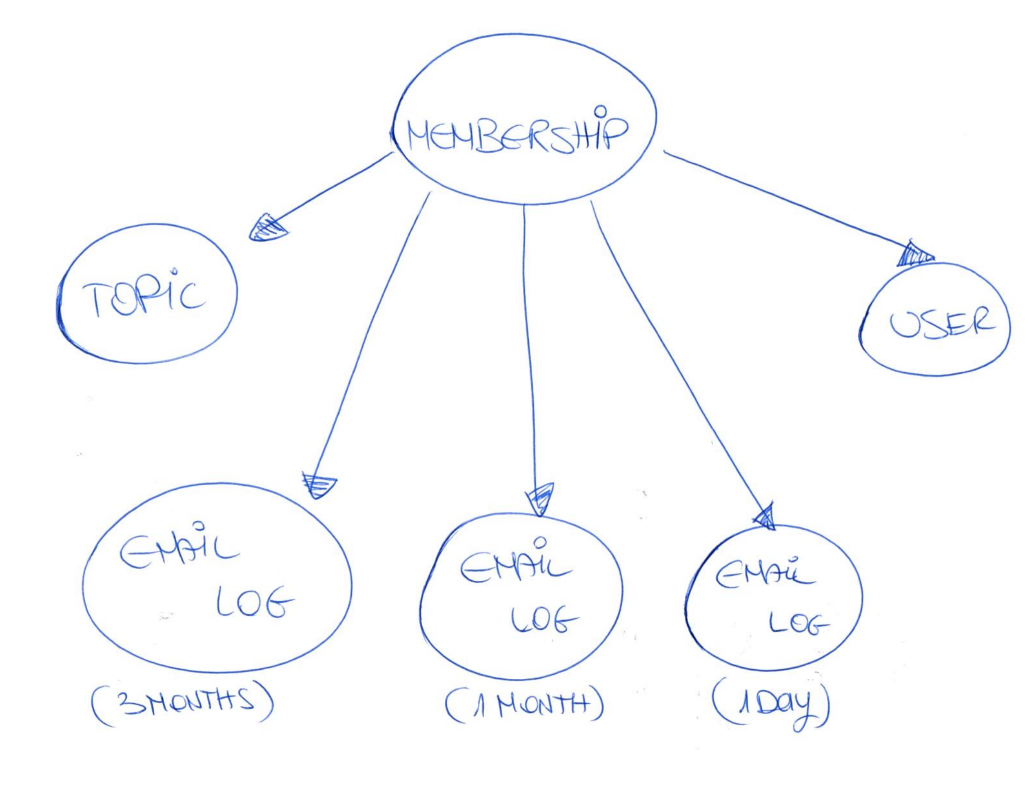 MEMBERSHIP
TOPIC
USER
EMAIL
LOG
(3 MONTHS)
EMAIL
LOG
(1 MONTH)
EMAIL
LOG
(1 DAY)